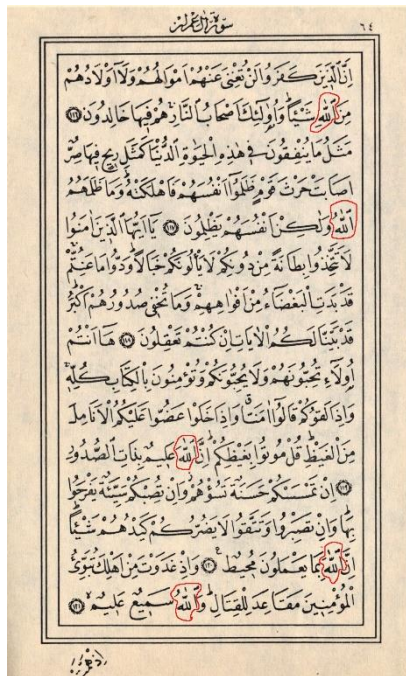 سورة آل عمران ٦٤
اِنَّ الَّذ۪ينَ كَفَرُوا لَنْ تُغْنِيَ عَنْهُمْ اَمْوَالُهُمْ وَلَٓا اَوْلَادُهُمْ
مِنَ اللّٰهِ شَيْـًٔاۜ وَاُو۬لٰٓئِكَ اَصْحَابُ النَّارِۚ هُمْ ف۪يهَا خَالِدُونَ ﴿١١٦﴾
مَثَلُ مَا يُنْفِقُونَ ف۪ي هٰذِهِ الْحَيٰوةِ الدُّنْيَا كَمَثَلِ ر۪يحٍ ف۪يهَا صِرٌّ
اَصَابَتْ حَرْثَ قَوْمٍ ظَلَمُٓوا اَنْفُسَهُمْ فَاَهْلَكَتْهُۜ وَمَا ظَلَمَهُمُ
اللّٰهُ وَلٰكِنْ اَنْفُسَهُمْ يَظْلِمُونَ ﴿١١٧﴾ يَٓا اَيُّهَا الَّذ۪ينَ اٰمَنُوا
لَا تَتَّخِذُوا بِطَانَةً مِنْ دُونِكُمْ لَا يَأْلُونَكُمْ خَبَالًاۜ وَدُّوا مَا عَنِتُّمْۚ
قَدْ بَدَتِ الْبَغْضَٓاءُ مِنْ اَفْوَاهِهِمْۚ وَمَا تُخْف۪ي صُدُورُهُمْ اَكْبَرُۜ
قَدْ بَيَّنَّا لَكُمُ الْاٰيَاتِ اِنْ كُنْتُمْ تَعْقِلُونَ ﴿١١٨﴾ هَٓا اَنْتُمْ
اُو۬لَٓاءِ تُحِبُّونَهُمْ وَلَا يُحِبُّونَكُمْ وَتُؤْمِنُونَ بِالْكِتَابِ كُلِّه۪ۚ
وَاِذَا لَقُوكُمْ قَالُٓوا اٰمَنَّاۗ وَاِذَا خَلَوْا عَضُّوا عَلَيْكُمُ الْاَنَامِلَ
مِنَ الْغَيْظِۜ قُلْ مُوتُوا بِغَيْظِكُمْۜ اِنَّ اللّٰهَ عَل۪يمٌ بِذَاتِ الصُّدُورِ
﴿١١٩﴾ اِنْ تَمْسَسْكُمْ حَسَنَةٌ تَسُؤْهُمْۘ وَاِنْ تُصِبْكُمْ سَيِّئَةٌ يَفْرَحُوا
بِهَاۜ وَاِنْ تَصْبِرُوا وَتَتَّقُوا لَا يَضُرُّكُمْ كَيْدُهُمْ شَيْـًٔاۜ
اِنَّ اللّٰهَ بِمَا يَعْمَلُونَ مُح۪يطٌ۟ ﴿١٢٠﴾ وَاِذْ غَدَوْتَ مِنْ اَهْلِكَ تُبَوِّئُ
الْمُؤْمِن۪ينَ مَقَاعِدَ لِلْقِتَالِۜ وَاللّٰهُ سَم۪يعٌ عَل۪يمٌۙ ﴿١٢١﴾